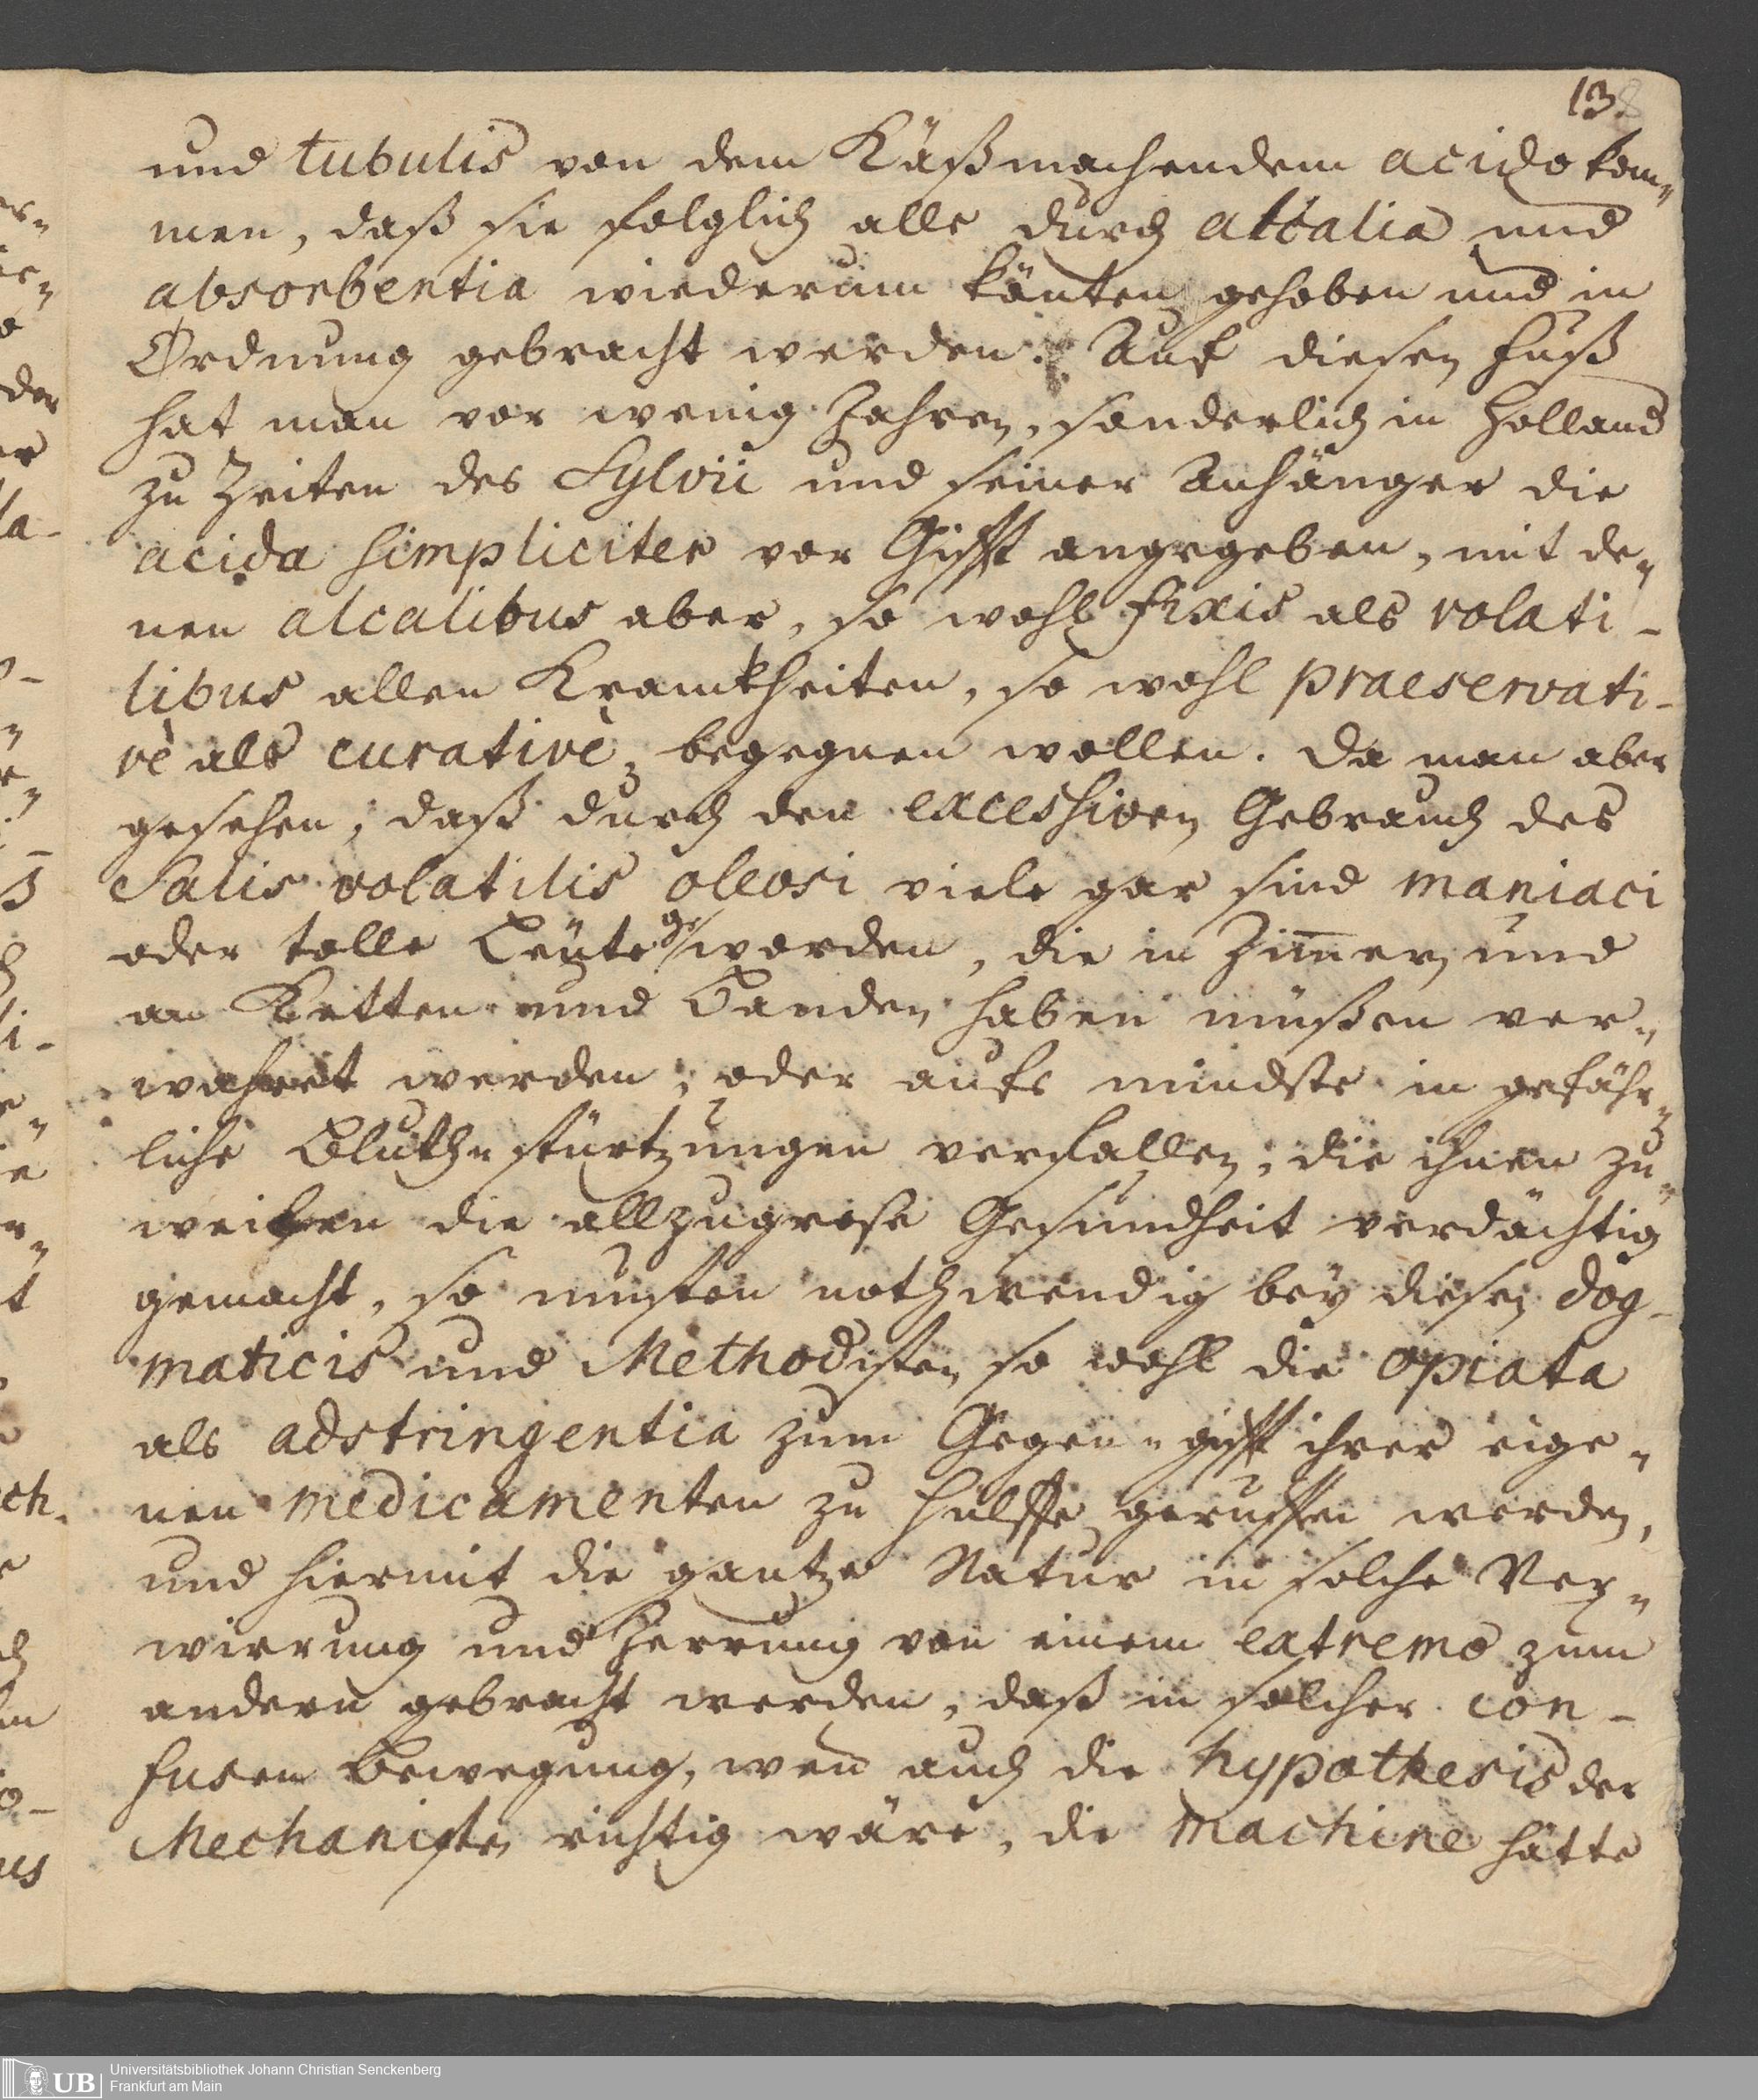 13.
und tubulis von dem Käßmachendem acido kom-
men, daß sie folglich alle durch alcalia und
absorbentia wiederum könten gehoben und in
Ordnung gebracht werden. Auf diesen Fuß
hat man vor wenig Jahren, sonderlich in Holland
zu Zeiten des Sylvii und seiner Anhänger die
acida simpliciter vor Gifft angegeben, mit de-
nen alcalibus aber, so wohl fixis als volati-
libus allen Kranckheiten, so wohl praeservati-
vè als curativè, begegnen wollen. Da man aber
gesehen, daß durch den excessiven Gebrauch des
Salis volatilis oleosi viele gar sind maniaci
oder tolle Leüte geworden, die in Zimmern und
an Ketten und Banden haben müßen ver-
wahret werden; oder aufs mindste in gefähr-
liche Bluth-stürtzungen verfallen; die ihnen zu-
weilen die allzugrose Gesundheit verdächtig
gemacht, so musten nothwendig bey diesen dog-
maticis und Methodisten so wohl die opiata
als adstringentia zum Gegen-gifft ihrer eige-
nen medicamenten zu Hülffe geruffen werden,
und hiermit die gantze Natur in solche Ver-
wirrung und Zerrung von einem extremo zum
andern gebracht werden, daß in solcher con-
fusen Bewegung, wen auch die hypothesis der
Mechanisten richtig wäre, die Machine hätte
UB
Universitätsbibliothek Johann Christian Senckenberg
Frankfurt am Main